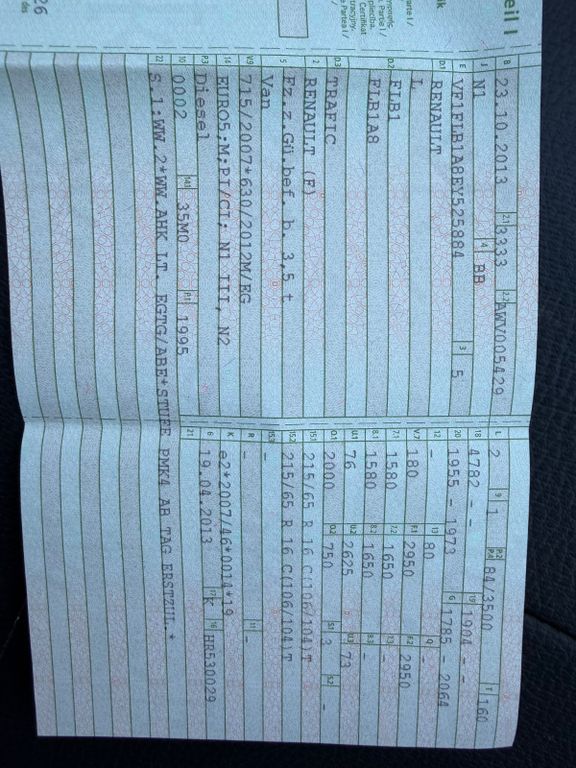 eil I
B 23.10.2013 2.1 3333 2.2 AWV005429
J N1 4 BB
E VF1FLB1A8EY525884 3 5
D.1 RENAULT
L
D.2 FLB1
FLB1A8
D.3 TRAFIC
2 RENAULT (F)
5 Fz.z.Gü.bef. b. 3,5 t
Van
V9 715/2007*630/2012M/EG
14 EURO5;M;PI/CI; N1 III, N2
P.3 Diesel
10 0002 14.1 35M0 P.1 1995
22 S.1:WW.2*WW.AHK LT. EGTG/ABE*STUFE PMK4 AB TAG ERSTZUL.*
L 2 9 1 P.2 P.4 84/3500 T 160
18 4782 - - 19 1904 - -
20 1955 - 1973 G 1785 - 2064
12 - 13 80 Q -
V.7 180 F.1 2950 F.2 2950
7.1 1580 7.2 1650 7.3 -
8.1 1580 8.2 1650 8.3 -
U.1 76 U.2 2625 U.3 73
O.1 2000 O.2 750 S.1 3 S.2 -
15.1 215/65 R 16 C(106/104)T
15.2 215/65 R 16 C(106/104)T
15.3 -
R - 11 -
K e2*2007/46*0014*19
6 19.04.2013 17 K 16 HR530029
21
26
des